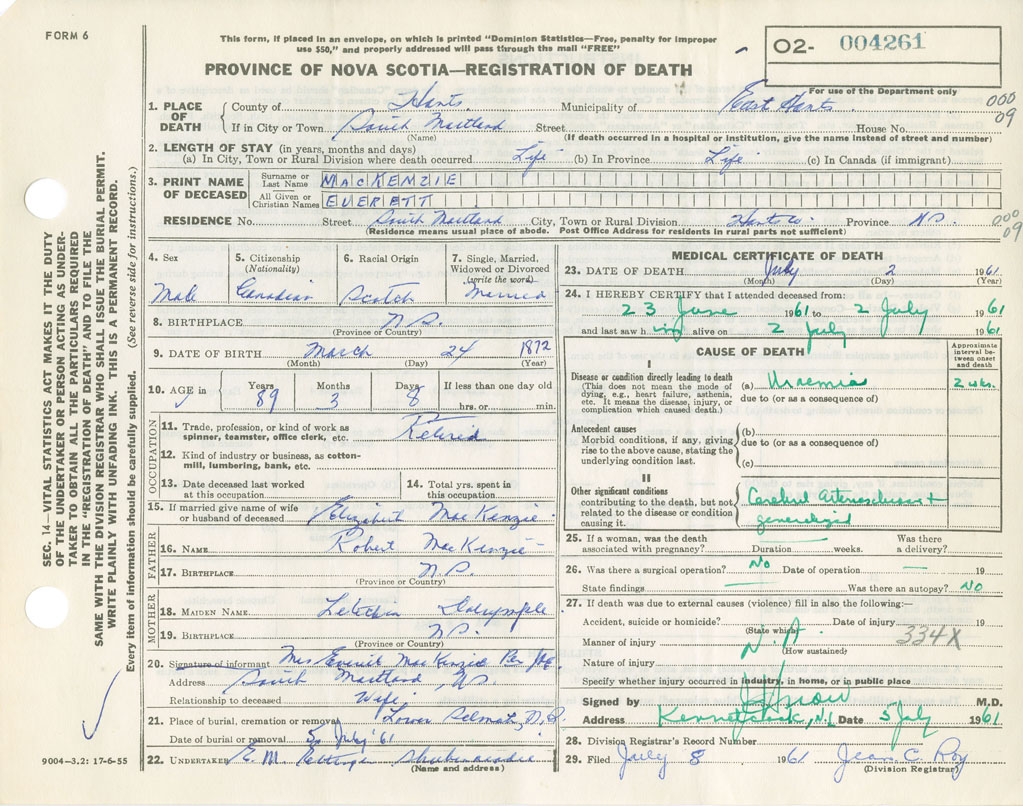 FORM 6
This form, if placed in an envelope, on which is printed "Dominion Statistics—Free, penalty for improper
use $50," and properly addressed will pass through the mail "FREE"
O2- 004261
For use of the Department only
PROVINCE OF NOVA SCOTIA—REGISTRATION OF DEATH
000
09
1. PLACE OF DEATH
County of Hants Municipality of East Hants
If in City or Town South Maitland Street House No.
(Name) (If death occurred in a hospital or institution, give the name instead of street and number)
2. LENGTH OF STAY (in years, months and days)
(a) In City, Town or Rural Division where death occurred Life (b) In Province Life (c) In Canada (if immigrant)
3. PRINT NAME OF DECEASED
Surname or Last Name MACKENZIE
All Given or Christian Names EVERETT
RESIDENCE No. Street South Maitland City, Town or Rural Division Hants Co. Province N.S.
(Residence means usual place of abode. Post Office Address for residents in rural parts not sufficient)
000
09
4. Sex Male
5. Citizenship (Nationality) Canadian
6. Racial Origin Scotch
7. Single, Married, Widowed or Divorced (write the word) Married
8. BIRTHPLACE N.S.
(Province or Country)
9. DATE OF BIRTH March 24 1872
(Month) (Day) (Year)
10. AGE in Years 89 Months 3 Days 8 If less than one day old hrs. or min.
OCCUPATION
11. Trade, profession, or kind of work as spinner, teamster, office clerk, etc. Retired
12. Kind of industry or business, as cotton-mill, lumbering, bank, etc.
13. Date deceased last worked at this occupation
14. Total yrs. spent in this occupation
15. If married give name of wife or husband of deceased Elizabeth MacKenzie
FATHER
16. NAME Robert MacKenzie
17. BIRTHPLACE N.S.
(Province or Country)
MOTHER
18. MAIDEN NAME Dalrymple
19. BIRTHPLACE N.S.
(Province or Country)
20. Signature of informant Mrs Everett MacKenzie Per
Address South Maitland, N.S.
Relationship to deceased Wife
21. Place of burial, cremation or removal Lower Selmah, N.S.
Date of burial or removal 5 July '61
22. UNDERTAKER E. M. Ettinger Shubenacadie
(Name and address)
MEDICAL CERTIFICATE OF DEATH
23. DATE OF DEATH July 2 1961
(Month) (Day) (Year)
24. I HEREBY CERTIFY that I attended deceased from:
23 June 1961 to 2 July 1961
and last saw him alive on 2 July 1961
CAUSE OF DEATH
Approximate interval between onset and death
I
Disease or condition directly leading to death
(This does not mean the mode of dying, e.g., heart failure, asthenia, etc. It means the disease, injury, or complication which caused death.)
(a) Uremia 2 wks.
due to (or as a consequence of)
Antecedent causes
Morbid conditions, if any, giving rise to the above cause, stating the underlying condition last.
(b)
due to (or as a consequence of)
(c)
II
Other significant conditions
contributing to the death, but not related to the disease or condition causing it.
Cerebral Arteriosclerosis +
generalized
25. If a woman, was the death associated with pregnancy? Duration weeks. Was there a delivery?
26. Was there a surgical operation? No Date of operation — 19
State findings — Was there an autopsy? NO
27. If death was due to external causes (violence) fill in also the following:—
Accident, suicide or homicide? Date of injury 19
(State which)
Manner of injury N.A 334X
(How sustained)
Nature of injury
Specify whether injury occurred in industry, in home, or in public place
Signed by M.D.
Address Kennetcook, N.S. Date 5 July 1961
28. Division Registrar's Record Number
29. Filed July 8 1961 Jean C. Roy
(Division Registrar)
SEC. 14—VITAL STATISTICS ACT MAKES IT THE DUTY
OF THE UNDERTAKER OR PERSON ACTING AS UNDER-
TAKER TO OBTAIN ALL THE PARTICULARS REQUIRED
IN THE "REGISTRATION OF DEATH" AND TO FILE THE
SAME WITH THE DIVISION REGISTRAR WHO SHALL ISSUE THE BURIAL PERMIT.
WRITE PLAINLY WITH UNFADING INK. THIS IS A PERMANENT RECORD.
Every item of information should be carefully supplied. (See reverse side for instructions.)
9004-3.2: 17-6-55